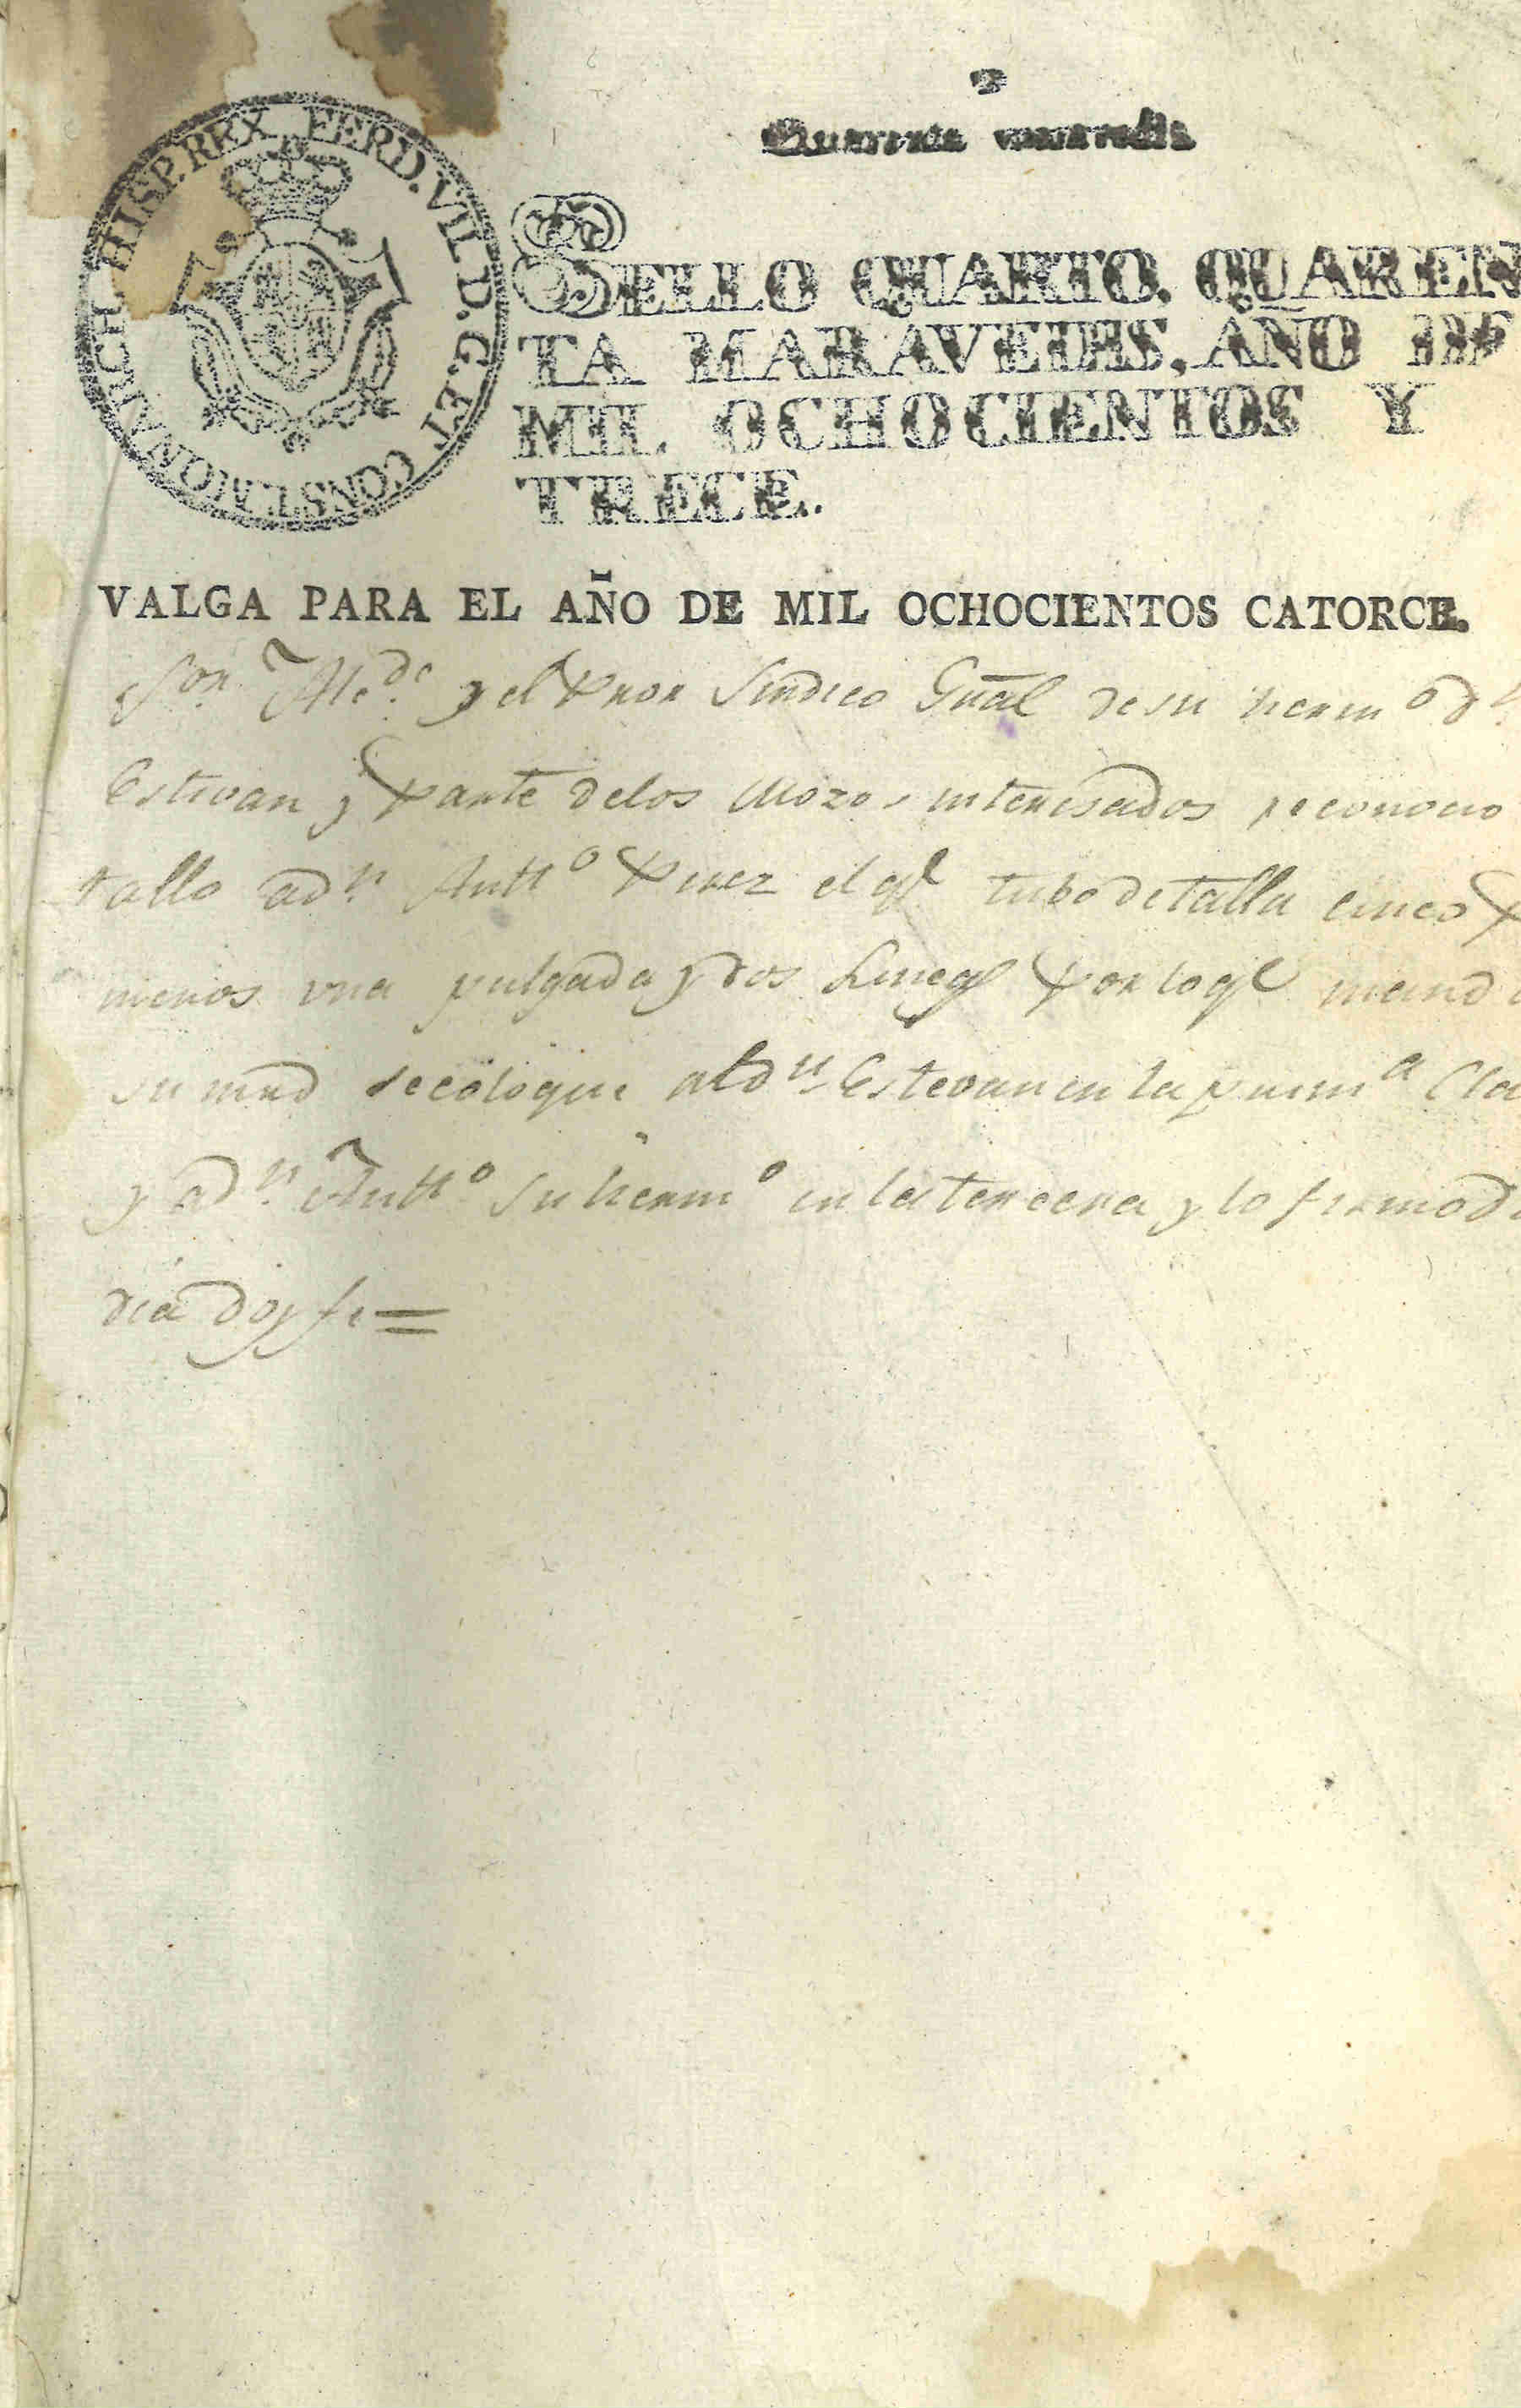 Quarenta maravedis
HISP. REX FERD. VII. D. G. ET CONSTIT. MONARCH.
SELLO QUARTO, QUAREN
TA MARAVEDIS, AÑO DE
MIL OCHOCIENTOS Y
TRECE.
VALGA PARA EL AÑO DE MIL OCHOCIENTOS CATORCE.
Sor. Alcde. y el Pror Sindico Gral de su hermo dn
Estevan y parte delos Mozos interesados reconocio
tallo a dn. Antto Perez el ql tubo de talla cinco p
menos una pulgada y dos Lineas por lo ql mando
su mrd se coloque al dn Estevan en la prima Cla
y a dn. Antto su hermo en la tercera y lo firmo d
dia doy fe =